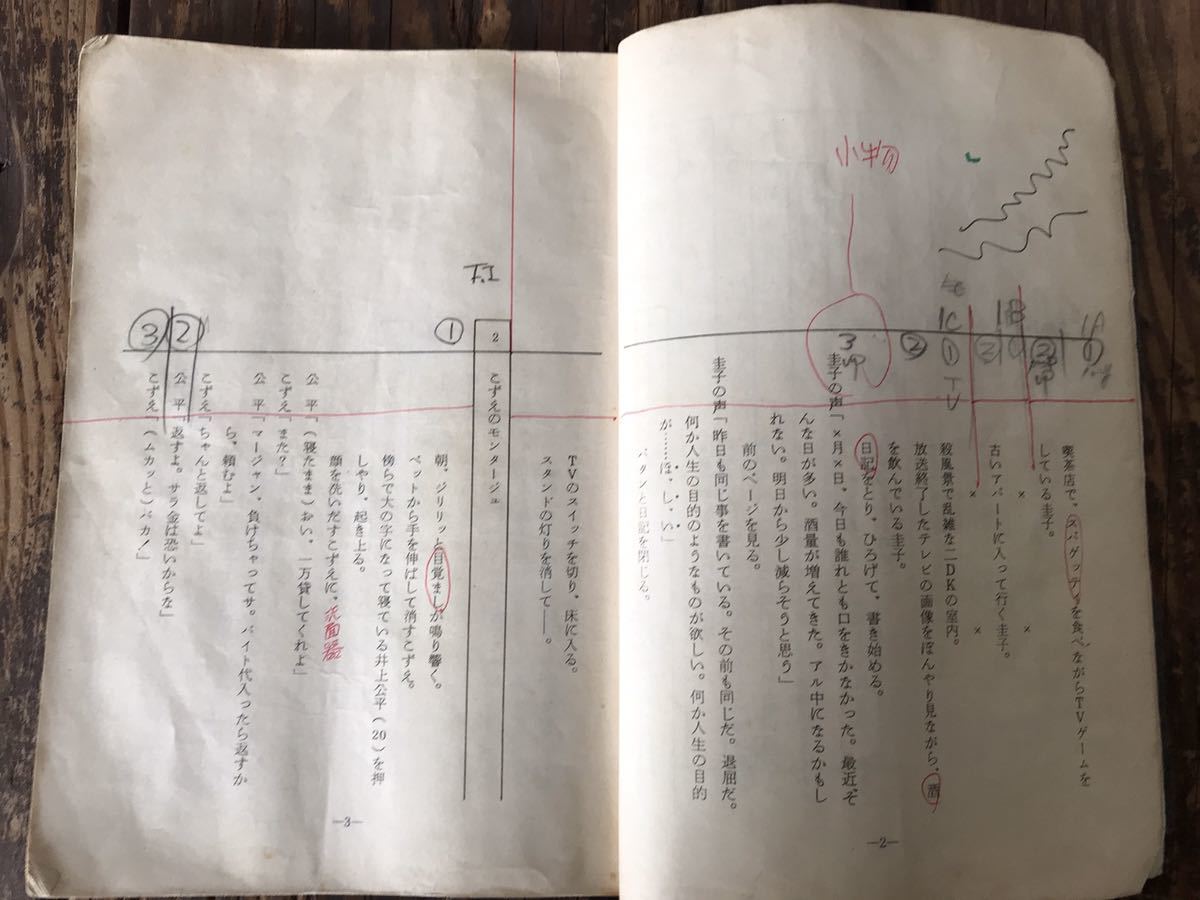 小物
1A
1B
1C
①
TV
②
②
3
喫茶店で、スパゲッティを食べながらTVゲームを
している圭子。
× ×
古いアパートに入って行く圭子。
× ×
殺風景で乱雑な二DKの室内。
放送終了したテレビの画像をぼんやり見ながら、酒
を飲んでいる圭子。
日記をとり、ひろげて、書き始める。
圭子の声「×月×日。今日も誰れとも口をきかなかった。最近、そ
んな日が多い。酒量が増えてきた。アル中になるかもし
れない。明日から少し減らそうと思う」
前のページを見る。
圭子の声「昨日も同じ事を書いている。その前も同じだ。退屈だ。
何か人生の目的のようなものが欲しい。何か人生の目的
が……ほ、し、い」
パタンと日記を閉じる。
—2—
TVのスイッチを切り、床に入る。
スタンドの灯りを消して——。
F.I
2 こずえのモンタージュ
①
朝。ジリリッと目覚ましが鳴り響く。
ベットから手を伸ばして消すこずえ。
傍らで大の字になって寝ている井上公平(20)を押
しやり、起き上る。
顔を洗いだすこずえに、
洗面器
公 平「(寝たまま)おい。一万貸してくれよ」
こずえ「また?」
公 平「マージャン、負けちゃってサ。バイト代入ったら返すか
ら、頼むよ」
こずえ「ちゃんと返してよ」
②
公 平「返すよ。サラ金は恐いからな」
③
こずえ「(ムカッと)バカ!」
—3—